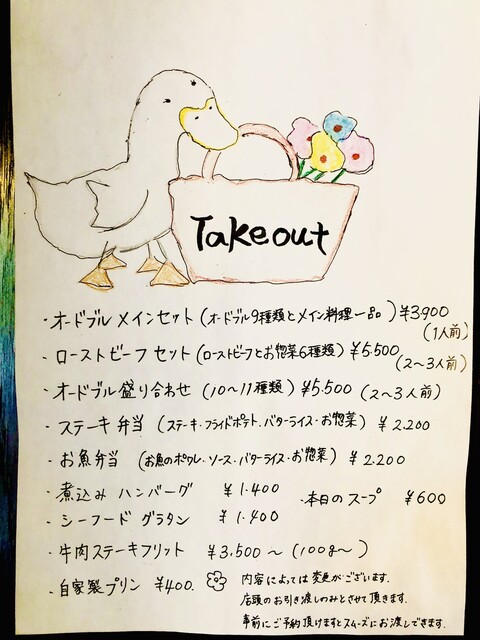 Takeout
・オードブル メインセット (オードブル9種類とメイン料理一品) ¥3,900
(1人前)
・ローストビーフ セット (ローストビーフとお惣菜6種類) ¥5,500
(2〜3人前)
・オードブル盛り合わせ (10〜11種類) ¥5,500 (2〜3人前)
・ステーキ弁当 (ステーキ・フライドポテト・バターライス・お惣菜) ¥2,200
・お魚弁当 (お魚のポワレ・ソース・バターライス・お惣菜) ¥2,200
・煮込み ハンバーグ ¥1,400 ・本日のスープ ¥600
・シーフード グラタン ¥1,400
・牛肉ステーキフリット ¥3,500〜 (100g〜)
・自家製プリン ¥400.
内容によっては変更がございます.
店頭のお引き渡しのみとさせて頂きます.
事前にご予約頂けますとスムーズにお渡しできます.